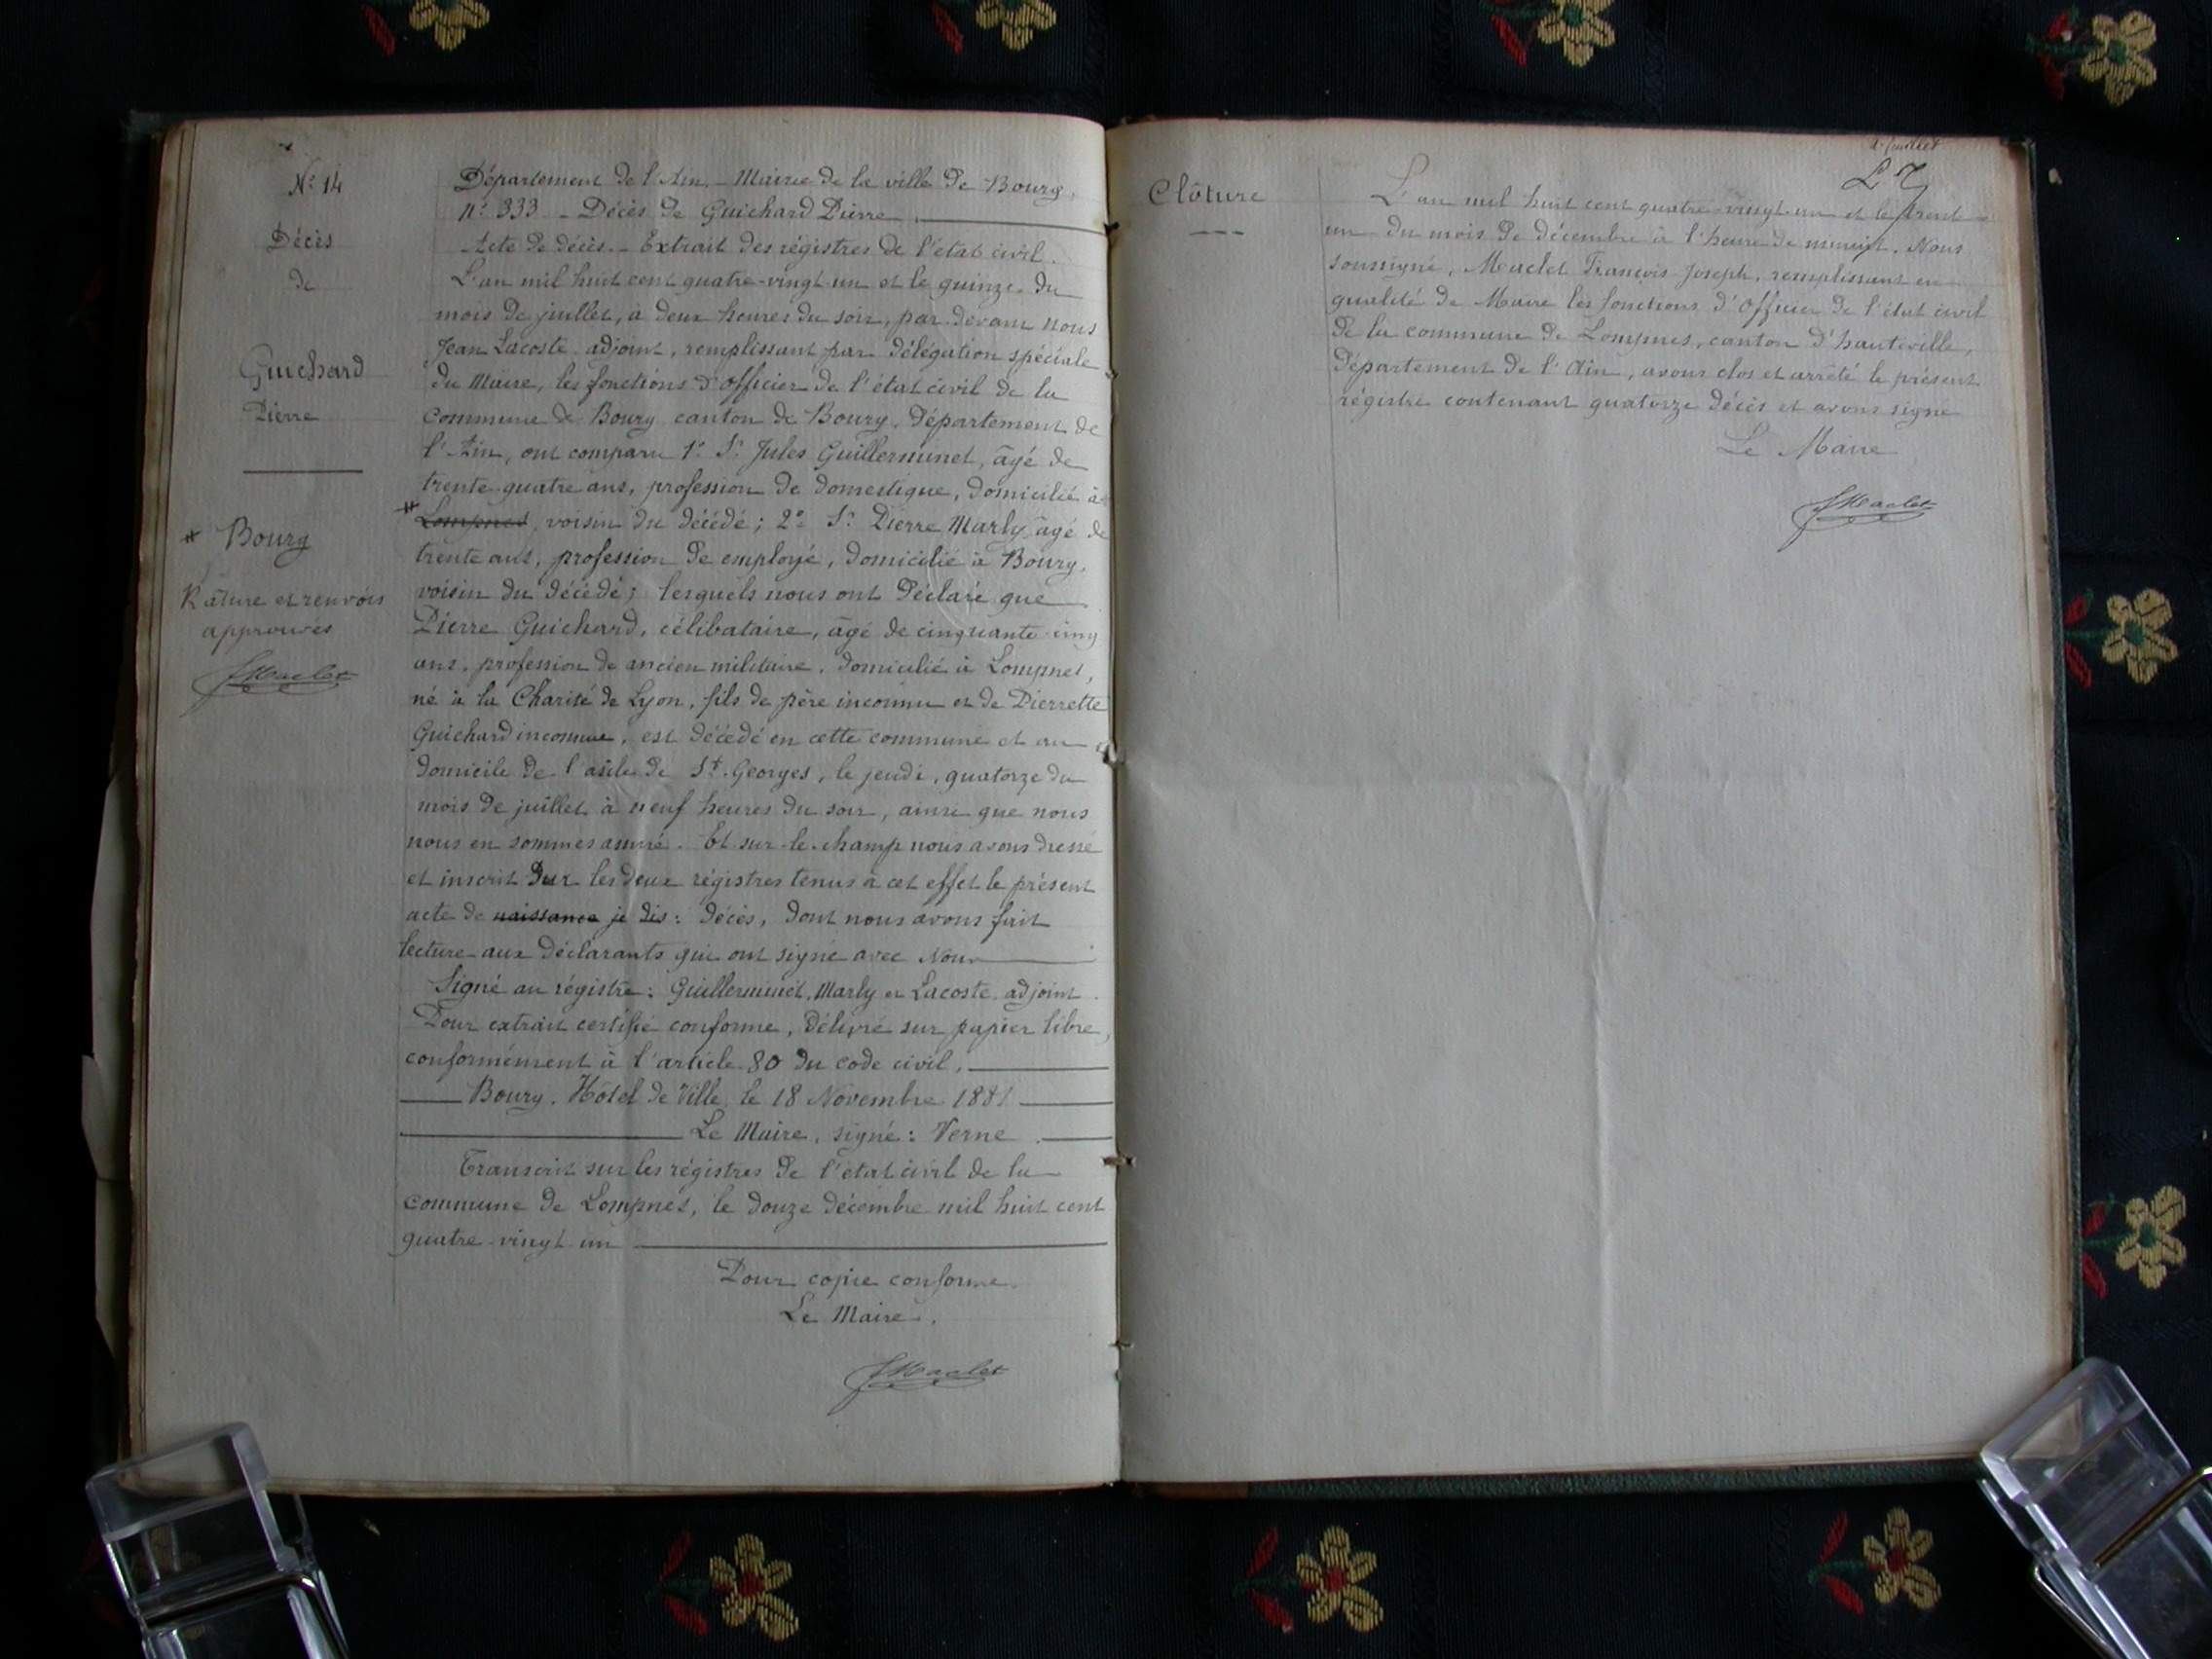 N° 14
Décès
de
Guichard
Pierre
* Bourg
Râture et renvois
approuvés
JMaclet
Département de l'Ain. - Mairie de la ville de Bourg,
N° 333 - Décès de Guichard Pierre.
Acte de décès. - Extrait des régistres de l'état civil.
L'an mil huit cent quatre-vingt-un et le quinze du
mois de juillet, à deux heures du soir, par-devant nous
Jean Lacoste adjoint, remplissant par délégation spéciale
du Maire, les fonctions d'officier de l'état civil de la
commune de Bourg canton de Bourg, département de
l'Ain, ont comparu 1° Sr Jules Guillerminet, âgé de
trente-quatre ans, profession de domestique, domicilié à
* Lompnes, voisin du décédé; 2° Sr Pierre Marly âgé de
trente ans, profession de employé, domicilié à Bourg,
voisin du décédé; lesquels nous ont déclaré que
Pierre Guichard, célibataire, âgé de cinquante-cinq
ans, profession de ancien militaire, domicilié à Lompnes,
né à la Charité de Lyon, fils de père inconnu et de Pierrette
Guichard inconnue, est décédé en cette commune et au
domicile de l'asile de St. Georges, le jeudi, quatorze du
mois de juillet à neuf heures du soir, ainsi que nous
nous en sommes assuré. Et sur-le-champ nous avons dressé
et inscrit sur les deux régistres tenus à cet effet le présent
acte de naissance je dis: décès, dont nous avons fait
lecture aux déclarants qui ont signé avec Nous
Signé au régistre: Guillerminet, Marly et Lacoste, adjoint.
Pour extrait certifié conforme, délivré sur papier libre,
conformément à l'article 80 du code civil.
Bourg, Hôtel de Ville, le 18 Novembre 1881
Le Maire, signé: Verne.
Transcrit sur les régistres de l'état civil de la
commune de Lompnes, le douze décembre mil huit cent
quatre-vingt-un
Pour copie conforme.
Le Maire.
JMaclet
Clôture
L'an mil huit cent quatre-vingt-un et le trente-
un du mois de décembre à l'heure de minuit. Nous
soussigné, Maclet François-Joseph, remplissant en
qualité de Maire les fonctions d'Officier de l'état civil
de la commune de Lompnes, canton d'hauteville,
département de l'Ain, avons clos et arrêté le présent
régistre contenant quatorze décès et avons signé
Le Maire
JMaclet